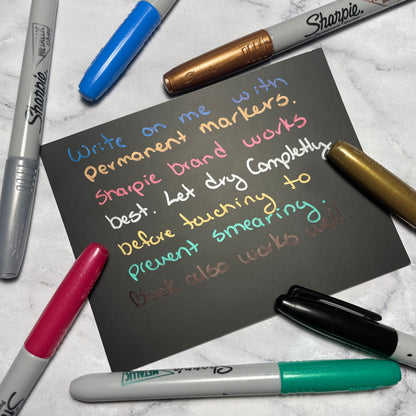 Write on me with
permanent markers.
Sharpie brand works
best. Let dry Completly
before touching to
prevent smearing.
Black also works well.
Sharpie
Sharpie
Sharpie
METALLIC